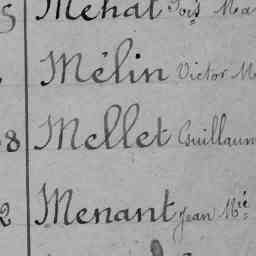 5 Méhat Fçois Ma
Mélin Victor M
8 Mellet Guillaum
2 Menant Jean Mie